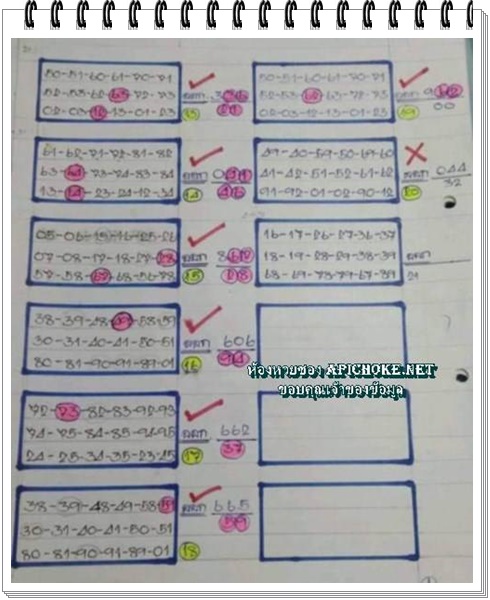 50-51-60-61-70-71
52-53-62-63-72-73
02-03-12-13-01-23
ออก 336
21
13
50-51-60-61-70-71
52-53-62-63-72-73
02-03-12-13-01-23
ออก 962
00
19
61-62-71-72-81-82
63-64-73-74-83-84
13-14-23-24-12-34
ออก 041
46
14
49-40-59-50-69-60
41-42-51-52-61-62
91-92-01-02-90-12
ออก 044
32
20
05-06-15-16-25-26
07-08-17-18-27-28
57-58-67-68-56-78
ออก 862
28
15
16-17-26-27-36-37
18-19-28-29-38-39
68-69-78-79-67-89
ออก
21
38-39-48-49-58-59
30-31-40-41-50-51
80-81-90-91-89-01
ออก 606
94
16
ห้องหวยซอง APICHOKE.NET
ขอบคุณเจ้าของข้อมูล
72-73-82-83-92-93
74-75-84-85-94-95
24-25-34-35-23-45
ออก 662
37
17
38-39-48-49-58-59
30-31-40-41-50-51
80-81-90-91-89-01
ออก 665
59
18